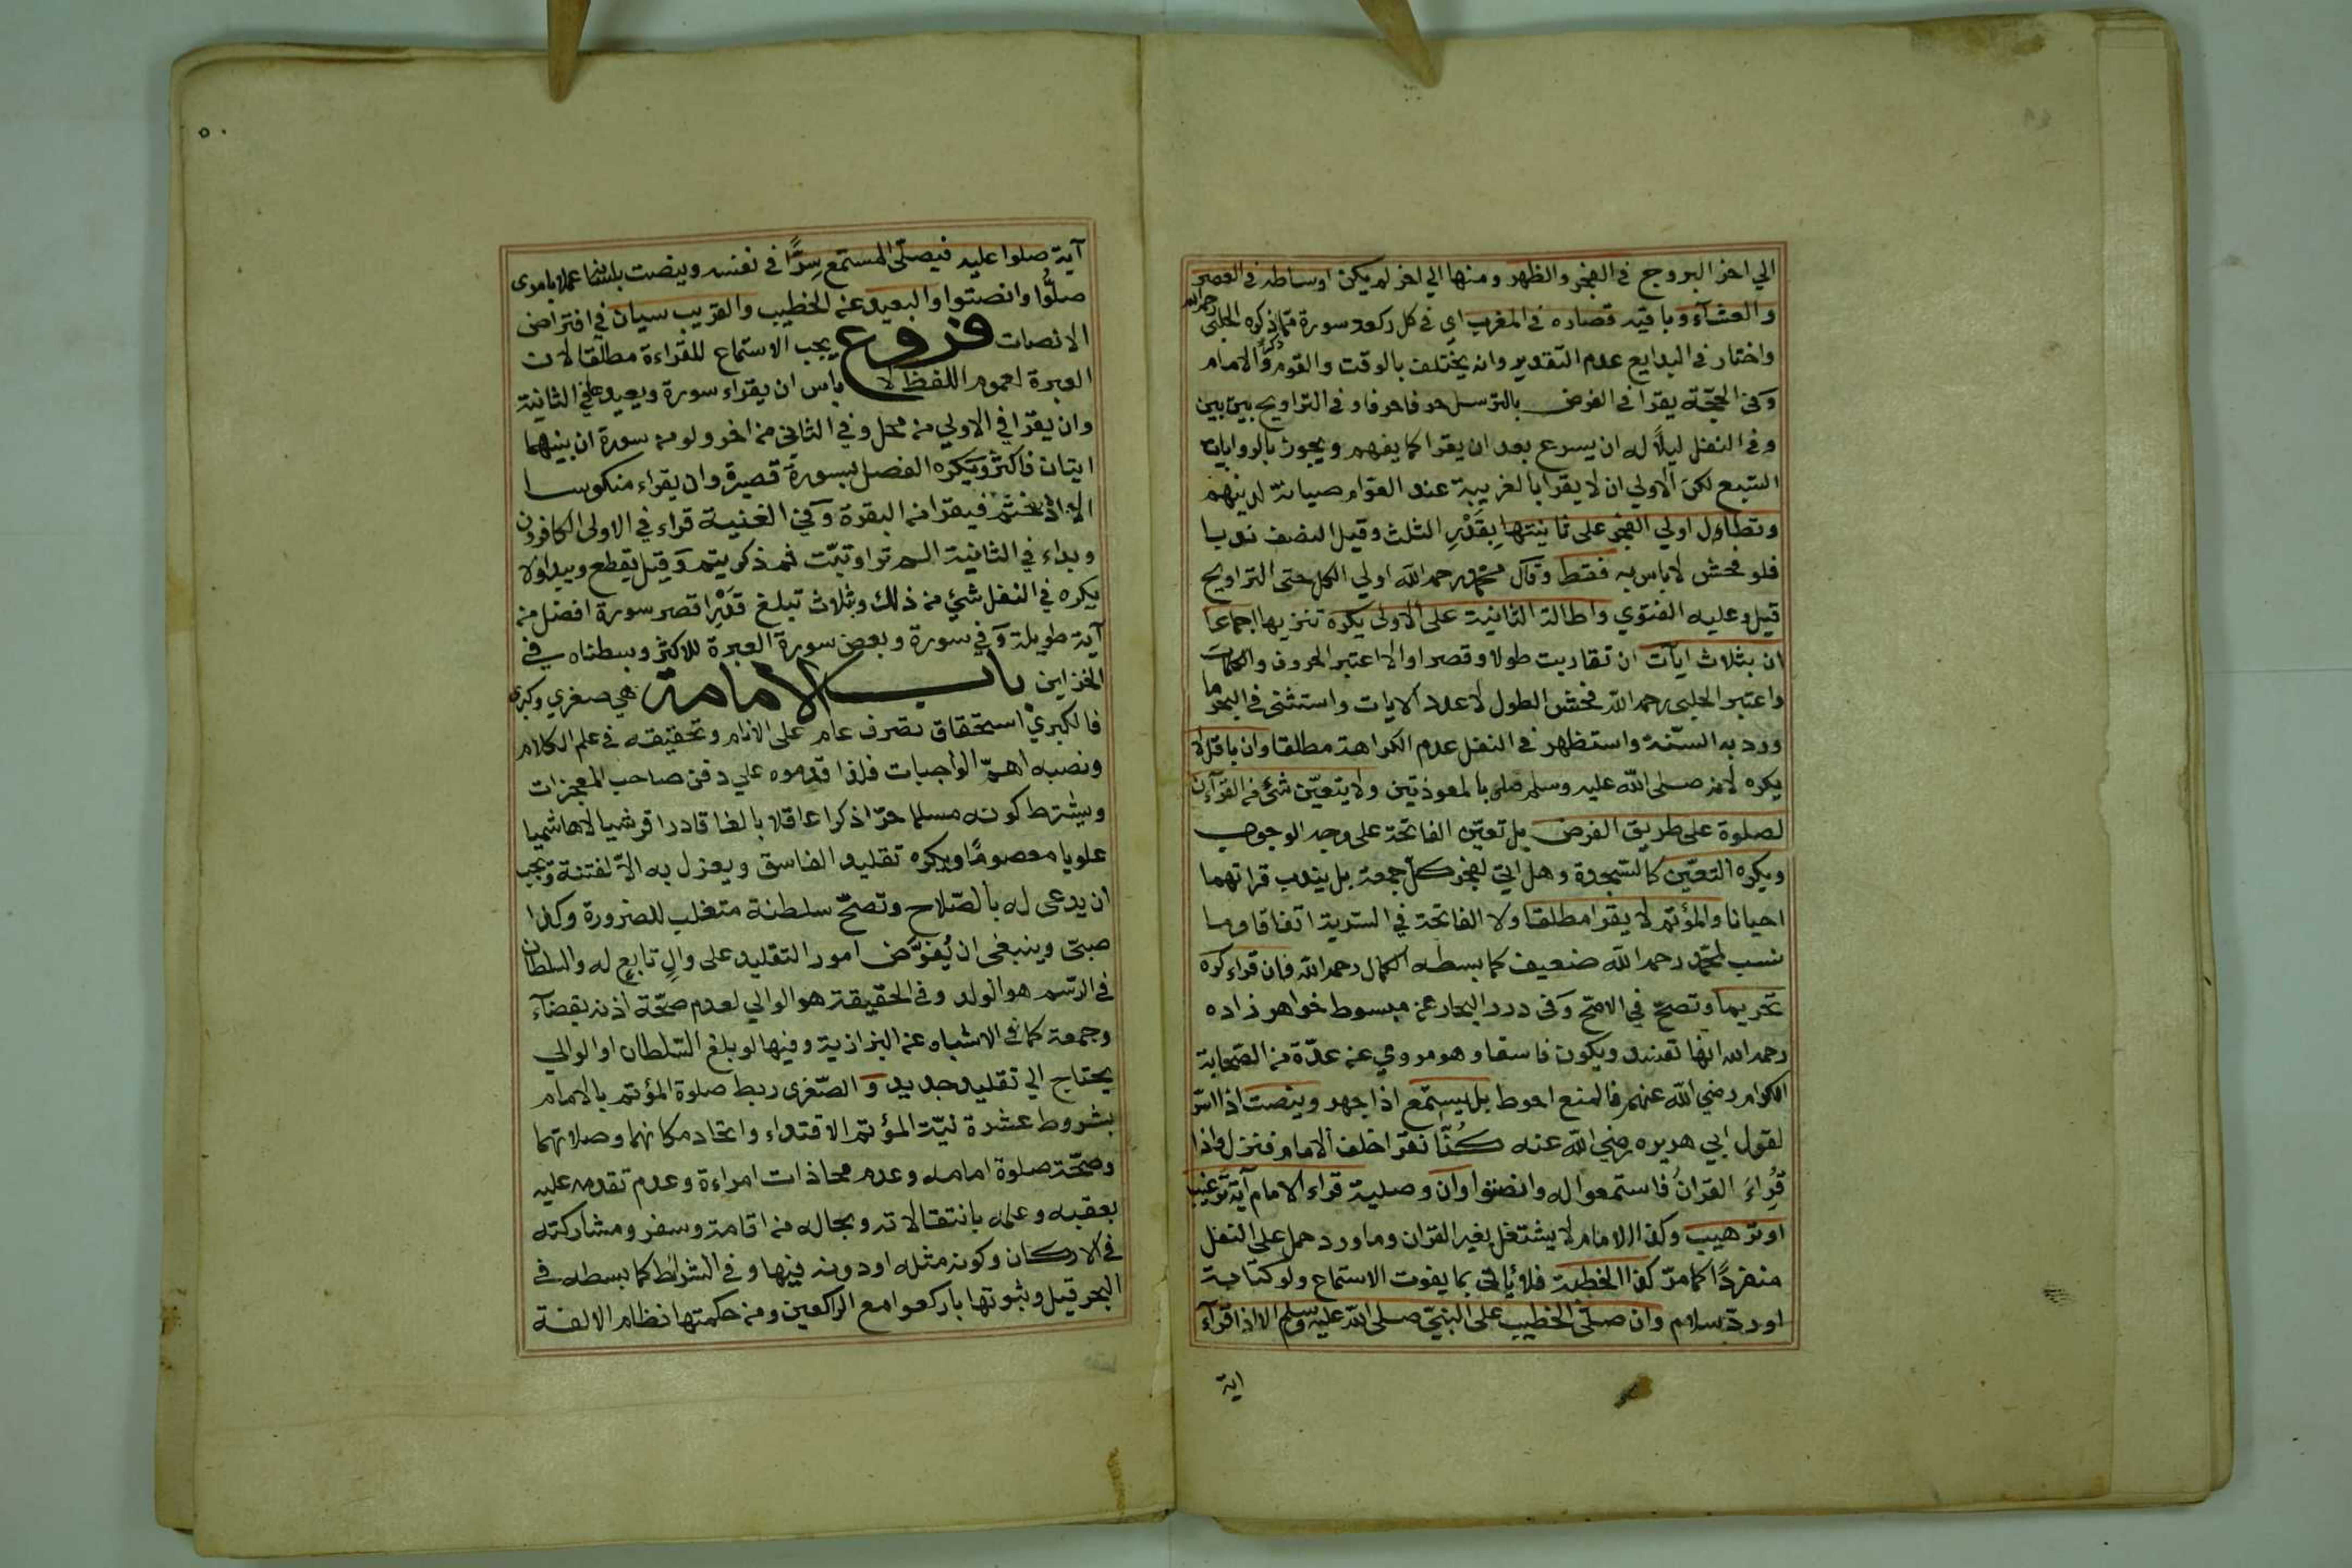 الي اخر البروج في الفجر والظهر ومنها الي اخر لم يكن اوساطه في العصر
والعشآء وباقيه قصاره في المغرب اي في كل ركعة سورة مما ذكره الحلبي رحمه الله
واختار في البدايع عدم التقدير وانه يختلف بالوقت والقوم والامام
وفي الحجّة يقرا في الفرض بالترسل حرفا حرفا وفي التراويح بين بين
وفي النفل ليلاً له ان يسرع بعد ان يقرا كما يفهم ويجوز بالروايات
السبع لكن الاولي ان لا يقرا بالغريبة عند العوام صيانة لدينهم
وتطاول اولي الفجر على ثانيتها بِقَدْرِ الثلث وقيل النصف ندبا
فلو فحش لا باس به فقط وقال محمد رحمه الله اولي الكل حتى التراويح
قيل وعليه الفتوي واطالة الثانية على الاولى يكره تنزيها اجماعا
ان بثلاث ايآت ان تقاربت طولا وقصرا والا اعتبر الحروف والكلمات
واعتبر الحلبي رحمه الله فحش الطول لا عدد الايات واستثنى في البحر ما
ورد به السّنة واستظهر في النفل عدم الكراهة مطلقا وان باقل لا
يكره لانه صلى الله عليه وسلم صلى بالمعوذتين ولا يتعيّن شئ من القرآن
لصلوة على طريق الفرض بل تعيّن الفاتحة على وجه الوجوب
ويكره التعيّين كالسّجدة وهل اتى لفجر كلّ جمعة بل يندب قراتهما
احيانا والمؤتم لا يقرا مطلقا ولا الفاتحة في السّرية اتفاقا وما
نسب لمحمّد رحمه الله ضعيف كما بسطه الكمال رحمه الله فان قراء كره
تحريما وتصحّ في الاصّح وفي درر البحار عن مبسوط خواهر زاده
رحمه الله انها تفسد ويكون فاسقا وهو مروي عن عدّة من الصّحابة
الكرام رضي الله عنهم فالمنع احوط بل يستمّع اذا جهر وينصت اذا اسّر
لقول ابي هريره رضي الله عنه كُنّا نقرا خلف الامام فنزل واذا
قُرِاءَ القرانُ فاستمعوا له وانصتوا وان وصلية قراء الامام آية ترغيب
او ترهيب وكذا الامام لا يشتغل بغير القران وما ورد حمل على النفل
منفردًا كما مرّ كذا الخطبة فلا يأتى بما يفوت الاستماع ولو كتابة
او ردّ سلام وان صلّى الخطيب على النبيّ صلى الله عليه وسلم الا اذا قرآ
اية
٥٠
آية صلوا عليه فيصلّى المستمع سِرًّا في نفسه وينصت بلسانه عملا بامرى
صلُّوا وانصتوا والبعيد عن الخطيب والقريب سيان في افتراض
الانصات فروع يجب الاستماع للقراءة مطلقا لان
العبرة لعموم اللفظ لا باس ان يقراء سورة ويعيدها في الثانية
وان يقرا في الاولي من محل وفي الثاني من اخر ولو من سورة ان بينهما
ايتان فاكثر ويكره الفصل بسورة قصيرة وان يقراء منكوسا
الا اذا ختم فيقرا من البقرة وفي الغنية قراء في الاولى الكافرون
وبداء في الثانية الم تر او تبّت ثم ذكر يتم وقيل يقطع ويبدا ولا
يكره في النفل شئ من ذلك وبثلاث تبلغ قَدْرِ اقصر سورة افضل من
آية طويلة وفي سورة وبعض سورة العبرة للاكثر وبسطناه في
الخزاين باب الامامة هي صغري وكبرى
فالكبري استحقاق تصرف عام على الانام وتحقيقه في علم الكلام
ونصبه اهمّ الواجبات فلذا قدموه علي دفن صاحب المعجزات
ويشترط كونه مسلما حرّا ذكرا عاقلا بالغا قادرا قرشيا لا هاشميا
علويا معصومًا ويكره تقليد الفاسق ويعزل به الاّ لفتنة ويجب
ان يدعى له بالصّلاح وتصحّ سلطنة متغلب للضرورة وكذا
صبىّ وينبغى ان يُفوّض امور التقليد على والٍ تابعٍ له والسلطان
في الرّسم هو الولد وفي الحقيقة هو الوالي لعدم صحّة اذنه بقضآء
وجمعة كما في الاشباه عن البزازية وفيها لو بلغ السّلطان او الوالي
يحتاج الي تقليد جديد و الصّغرى ربط صلوة المؤتم بالامام
بشروط عشرة نيّة المؤتم الاقتداء واتحاد مكانهما وصلاتهما
وصحّة صلوة امامه وعدم محاذات امراءة وعدم تقدمه عليه
بعقبه وعلمه بانتقالاته وبحاله من اقامة وسفر ومشاركته
في الاركان وكونه مثله او دونه فيها وفي الشرائط كما بسطه في
البحر قيل وثبوتها باركعوا مع الراكعين ومن حكمتها نظام الالفة